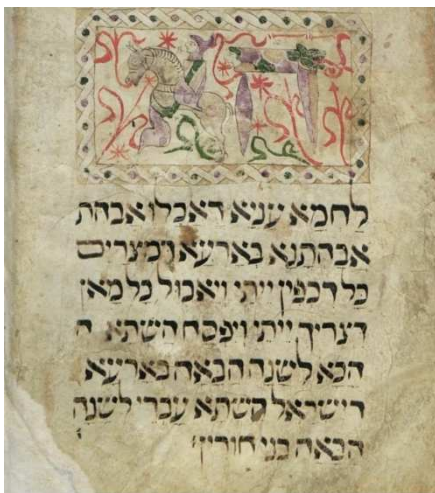 לחמא עניא דאכלו אבהת
אבהתנא בארעא דמצרים
כל דכפין ייתי ויאכול כל מאן
דצריך ייתי ויפסח השתא ה
הכא לשנה הבאה בארעא
דישראל השתא עבדי לשנה
הבאה בני חורין